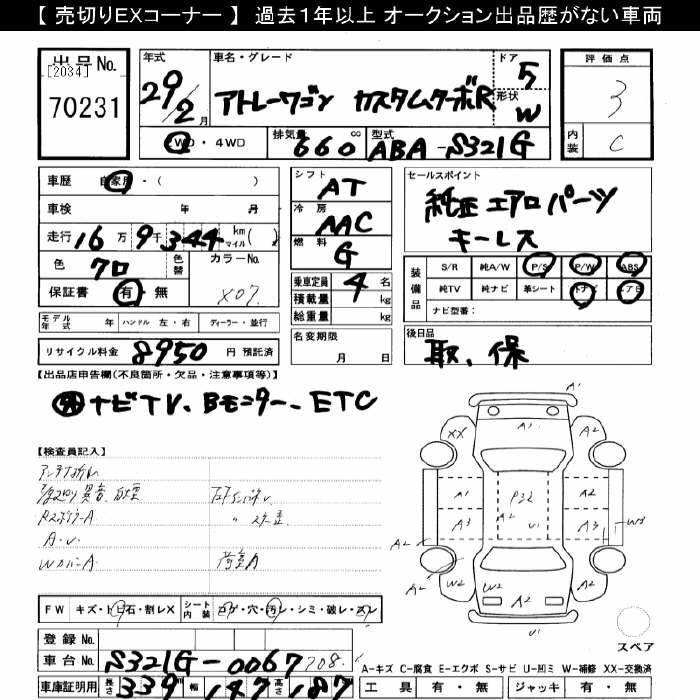 【 売切りEXコーナー 】 過去１年以上 オークション出品歴がない車両
出品No.
[2034]
70231
年式
29/2 月
車名・グレード
アトレーワゴン カスタムターボR
ドア
5
形状
W
評価点
3
内装
C
2WD・4WD
排気量
660 cc
型式
ABA-S321G
車歴 自家用・( )
車検 年 月
走行 16万9千344 km マイル( )
色 クロ
色替
カラーNo.
X07
保証書 有・無
シフト
AT
冷房
AAC
燃料
G
乗車定員 4 名
積載量 kg
総重量 kg
セールスポイント
純正エアロパーツ
キーレス
装備品
S/R 純A/W P/S P/W ABS
純TV 純ナビ 革シート
ナビ型番：
モデル年式 年 ハンドル 左・右 ディーラー・並行
リサイクル料金 8950 円 預託済
名変期限
月 日
後日品
取、保
【出品店申告欄(不良箇所・欠品・注意事項等)】
ナビTV、Bモニター、ETC
【検査員記入】
アンテナ折れ
RスポイラーA
A・U
WカバーA
荷室A
A1
A1
XX
A2
A1
P32
A2
A3
A2
U1
A3
W3
A2
A2
W2
W2
A2
W2
U1
スペア
FW キズ・トビ石・割レX
シート内装 コゲ・穴・汚レ・シミ・破レ・スレ
登録No.
車台No. S321G-0067708
A-キズ C-腐食 E-エクボ S-サビ U-凹ミ W-補修 XX-交換済
車庫証明用 長さ 339 幅 147 高さ 187
工具 有・無 ジャッキ 有・無